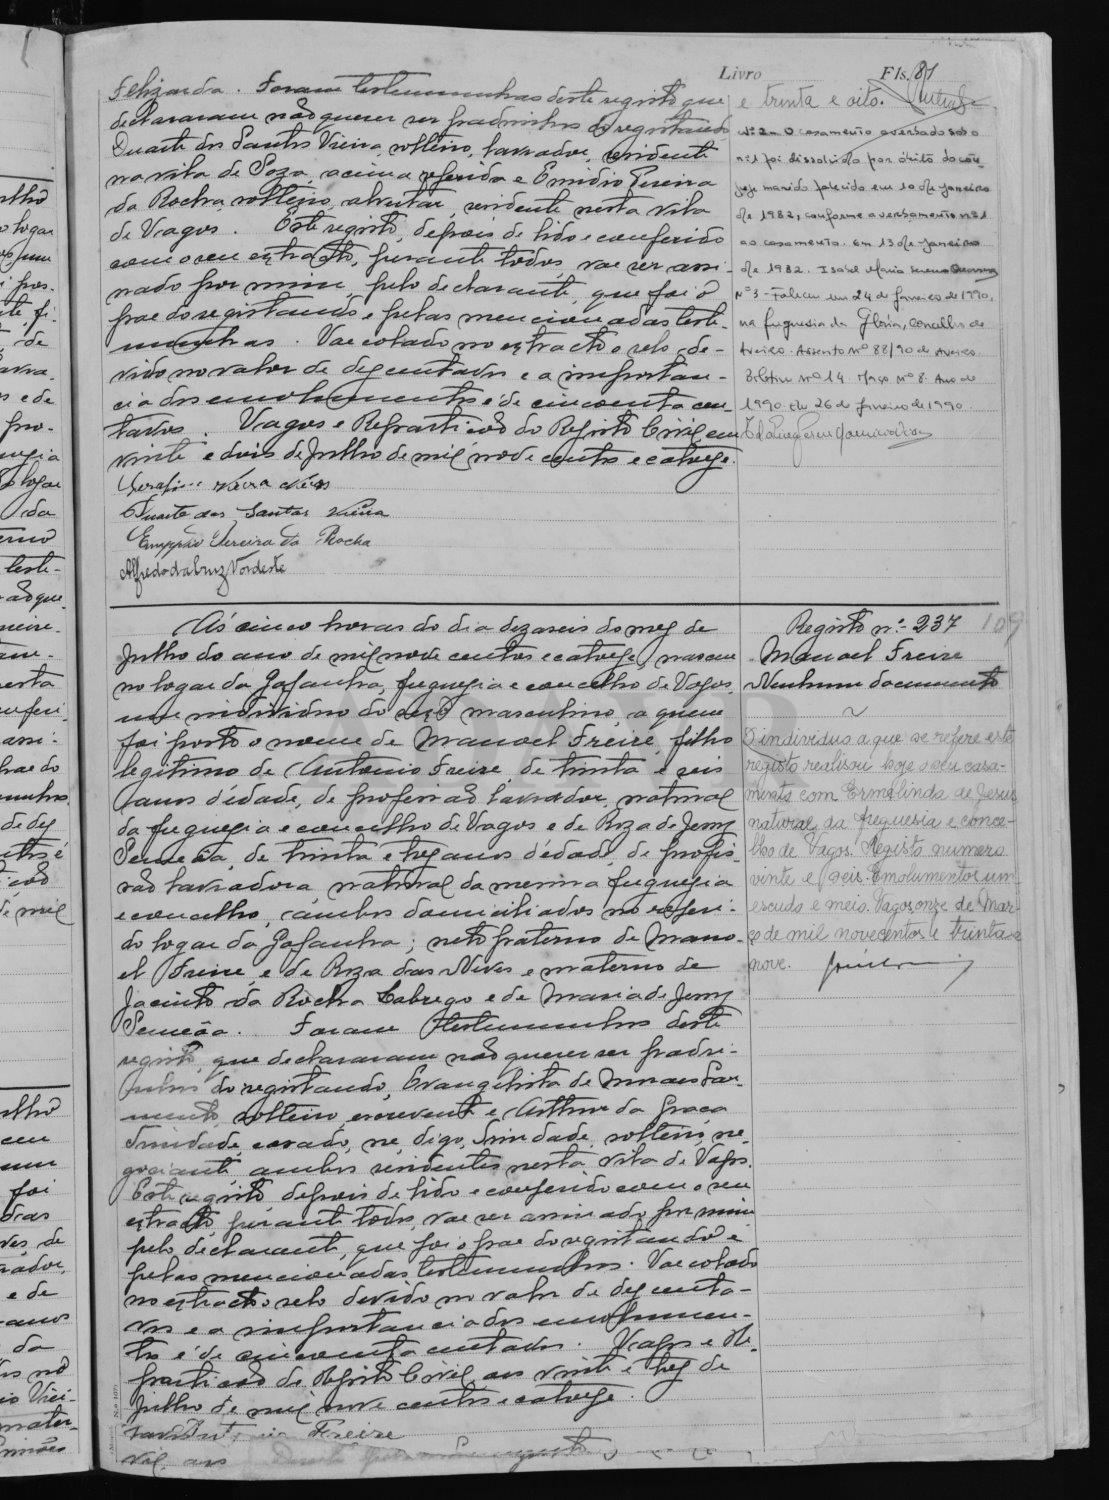 Livro Fls. 81
Felizarda. Foram testemunhas deste registo que
declararam não querer ser padrinhos do registando
Duarte dos Santos Vieira, solteiro, lavrador, residente
na vila de Soza, acima referida e Emidio Pereira
da Rocha, solteiro, residente nesta vila
de Vagos. Este registo, depois de lido e conferido
com o seu extracto, perante todos, vae ser assi-
nado por mim, pelo declarante, que foi o
pae do registando e pelas mencionadas teste-
munhas. Vae colado no extracto o selo de-
vido no valor de dez centavos e a importan-
cia dos emolumentos é de cincoenta cen-
tavos. Vagos e Repartição do Registo Civil, em
vinte e dois de Julho de mil nove centos e catorze.
Duarte dos Santos Vieira
Emygdio Pereira da Rocha
Alfredo da Cruz Nordeste
e trinta e oito.
Nº 2 = O casamento averbado sob o
nº 1 foi dissolvido por óbito do côn-
juge marido falecido em 10 de Janeiro
de 1982, conforme averbamento nº 1
ao casamento. Em 13 de Janeiro
de 1982. Isabel Maria
Nº 3 - Faleceu em 24 de Janeiro de 1990,
na freguesia da Glória, concelho de
Aveiro. Assento nº 88/90 de Aveiro.
Boletim nº 14 Maço nº 8. Ano de
1990. Em 26 de Janeiro de 1990.
Ás cinco horas do dia dezaseis do mez de
Julho do ano de mil nove centos e catorze, nasceu
no logar da Gafanha, freguezia e concelho de Vagos,
um individuo do sexo masculino, a quem
foi posto o nome de Manoel Freire, filho
legitimo de Antonio Freire, de trinta e seis
anos d'edade, de profissão lavrador, natural
da freguezia e concelho de Vagos e de Roza de Jesus
de trinta e trez anos d'edade, de profis-
são lavradora, natural da mesma freguezia
e concelho, ambos domiciliados no referi-
do logar da Gafanha; neto paterno de Mano-
el Freire e de Roza das Neves e materno de
Jacinto da Rocha Labrego e de Maria de Jesus
Foram testemunhas deste
registo, que declararam não querer ser padri-
nhos do registando, Evangelista de Moraes Sar-
mento, solteiro, escrevente e Arthur da Graça
Trindade, casado, ne, digo, Trindade, solteiro, ne-
gociante, ambos residentes nesta vila de Vagos.
Este registo, depois de lido e conferido com o seu
extracto, perante todos, vae ser assinado por mim
pelo declarante, que foi o pae do registando e
pelas mencionadas testemunhas. Vae colado
no extracto o selo devido no valor de dez centa-
vos e a importancia dos emolumen-
tos é de cincoenta centavos. Vagos e Re-
partição do Registo Civil, aos vinte e trez de
Julho de mil nove centos e catorze.
Freire
Registo nº 237 109
Manoel Freire
Nenhum documento
O individuo a que se refere este
registo realisou hoje o seu casa-
mento com Ermelinda de Jesus,
natural da freguesia e conce-
lho de Vagos. Registo numero
vinte e seis. Emolumentos um
escudo e meio. Vagos, onze de Mar-
ço de mil novecentos e trinta e
nove.